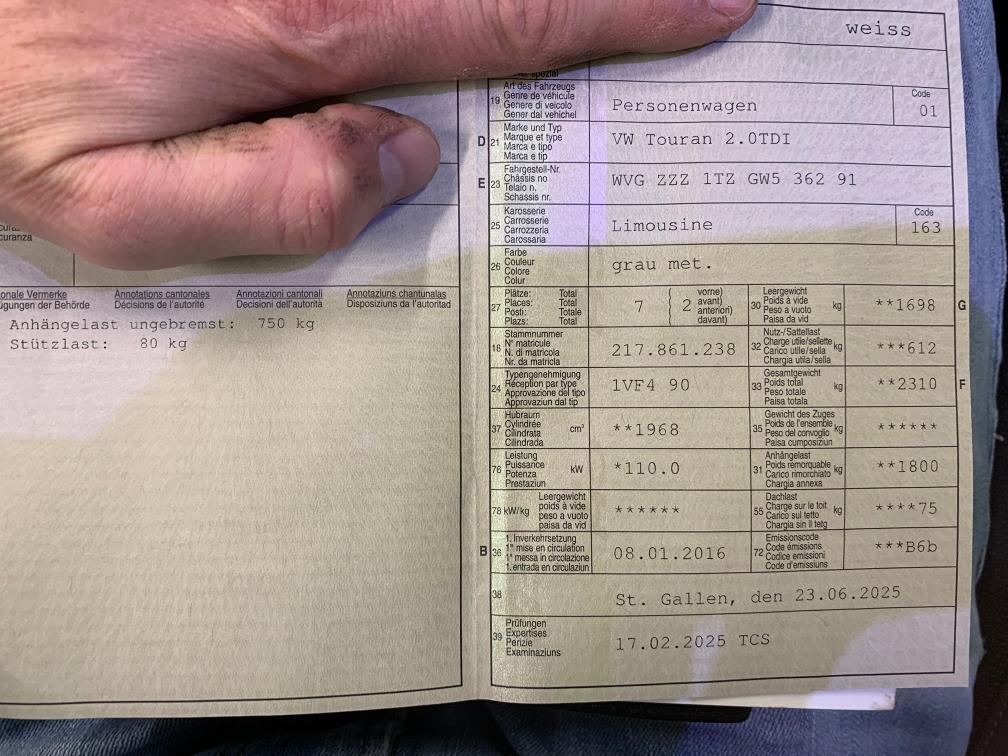 curanza
onale Vermerke Annotations cantonales Annotazioni cantonali Annotaziuns chantunalas
ügungen der Behörde Décisions de l'autorité Decisioni dell'autorità Disposiziuns da l'autoritad
Anhängelast ungebremst: 750 kg
Stützlast: 80 kg
weiss
spezial
19 Art des Fahrzeugs
Genre de véhicule
Genere di veicolo
Gener dal vehichel
Personenwagen
Code
01
D 21 Marke und Typ
Marque et type
Marca e tipo
Marca e tip
VW Touran 2.0TDI
E 23 Fahrgestell-Nr.
Châssis no
Telaio n.
Schassis nr.
WVG ZZZ 1TZ GW5 362 91
25 Karosserie
Carrosserie
Carrozzeria
Carossaria
Limousine
Code
163
26 Farbe
Couleur
Colore
Colur
grau met.
27 Plätze: Total
Places: Total
Posti: Totale
Plazs: Total
7 2 vorne)
avant)
anteriori)
davant)
30 Leergewicht
Poids à vide
Peso a vuoto
Paisa da vid
kg
**1698 G
18 Stammnummer
N° matricule
N. di matricola
Nr. da matricla
217.861.238
32 Nutz-/Sattellast
Charge utile/sellette
Carico utile/sella
Chargia utila/sella
kg
***612
24 Typengenehmigung
Réception par type
Approvazione del tipo
Approvaziun dal tip
1VF4 90
33 Gesamtgewicht
Poids total
Peso totale
Paisa totala
kg
**2310 F
37 Hubraum
Cylindrée
Cilindrata
Cilindrada
cm³
**1968
35 Gewicht des Zuges
Poids de l'ensemble
Peso del convoglio
Paisa cumposiziun
kg
******
76 Leistung
Puissance
Potenza
Prestaziun
kW
*110.0
31 Anhängelast
Poids remorquable
Carico rimorchiato
Chargia annexa
kg
**1800
78 kW/kg Leergewicht
poids à vide
peso a vuoto
paisa da vid
******
55 Dachlast
Charge sur le toit
Carico sul tetto
Chargia sin il tetg
kg
****75
B 36 1. Inverkehrsetzung
1ʳᵉ mise en circulation
1ᵃ messa in circolazione
1. entrada en circulaziun
08.01.2016
72 Emissionscode
Code émissions
Codice emissioni
Code d'emissiuns
***B6b
38
St. Gallen, den 23.06.2025
39 Prüfungen
Expertises
Perizie
Examinaziuns
17.02.2025 TCS